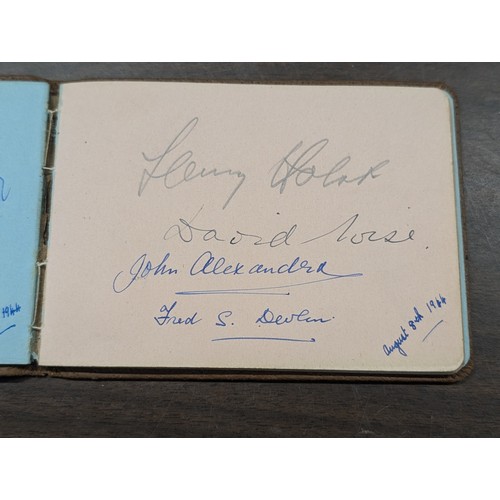 Henry Holst
David Wise.
John Alexandra
Fred S. Devlin
August 8th 1944
1944